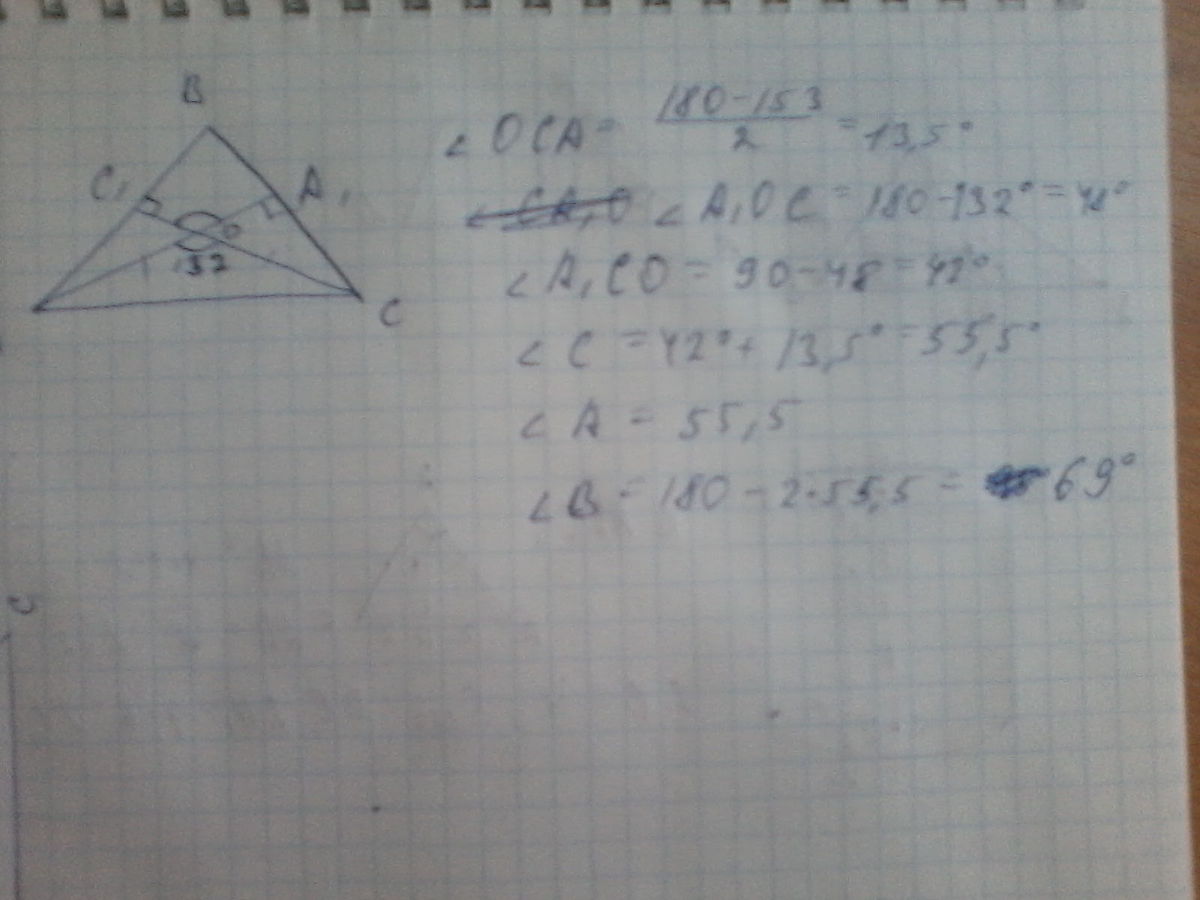 B
C₁
A₁
O
132
C
∠ OCA = (180-153)/2 = 13,5°
∠ CA₁O ∠ A₁OC = 180-132° = 48°
∠ A₁CO = 90-48 = 42°
∠ C = 42°+ 13,5° = 55,5°
∠ A = 55,5
∠ B = 180 - 2·55,5 = 69°
C